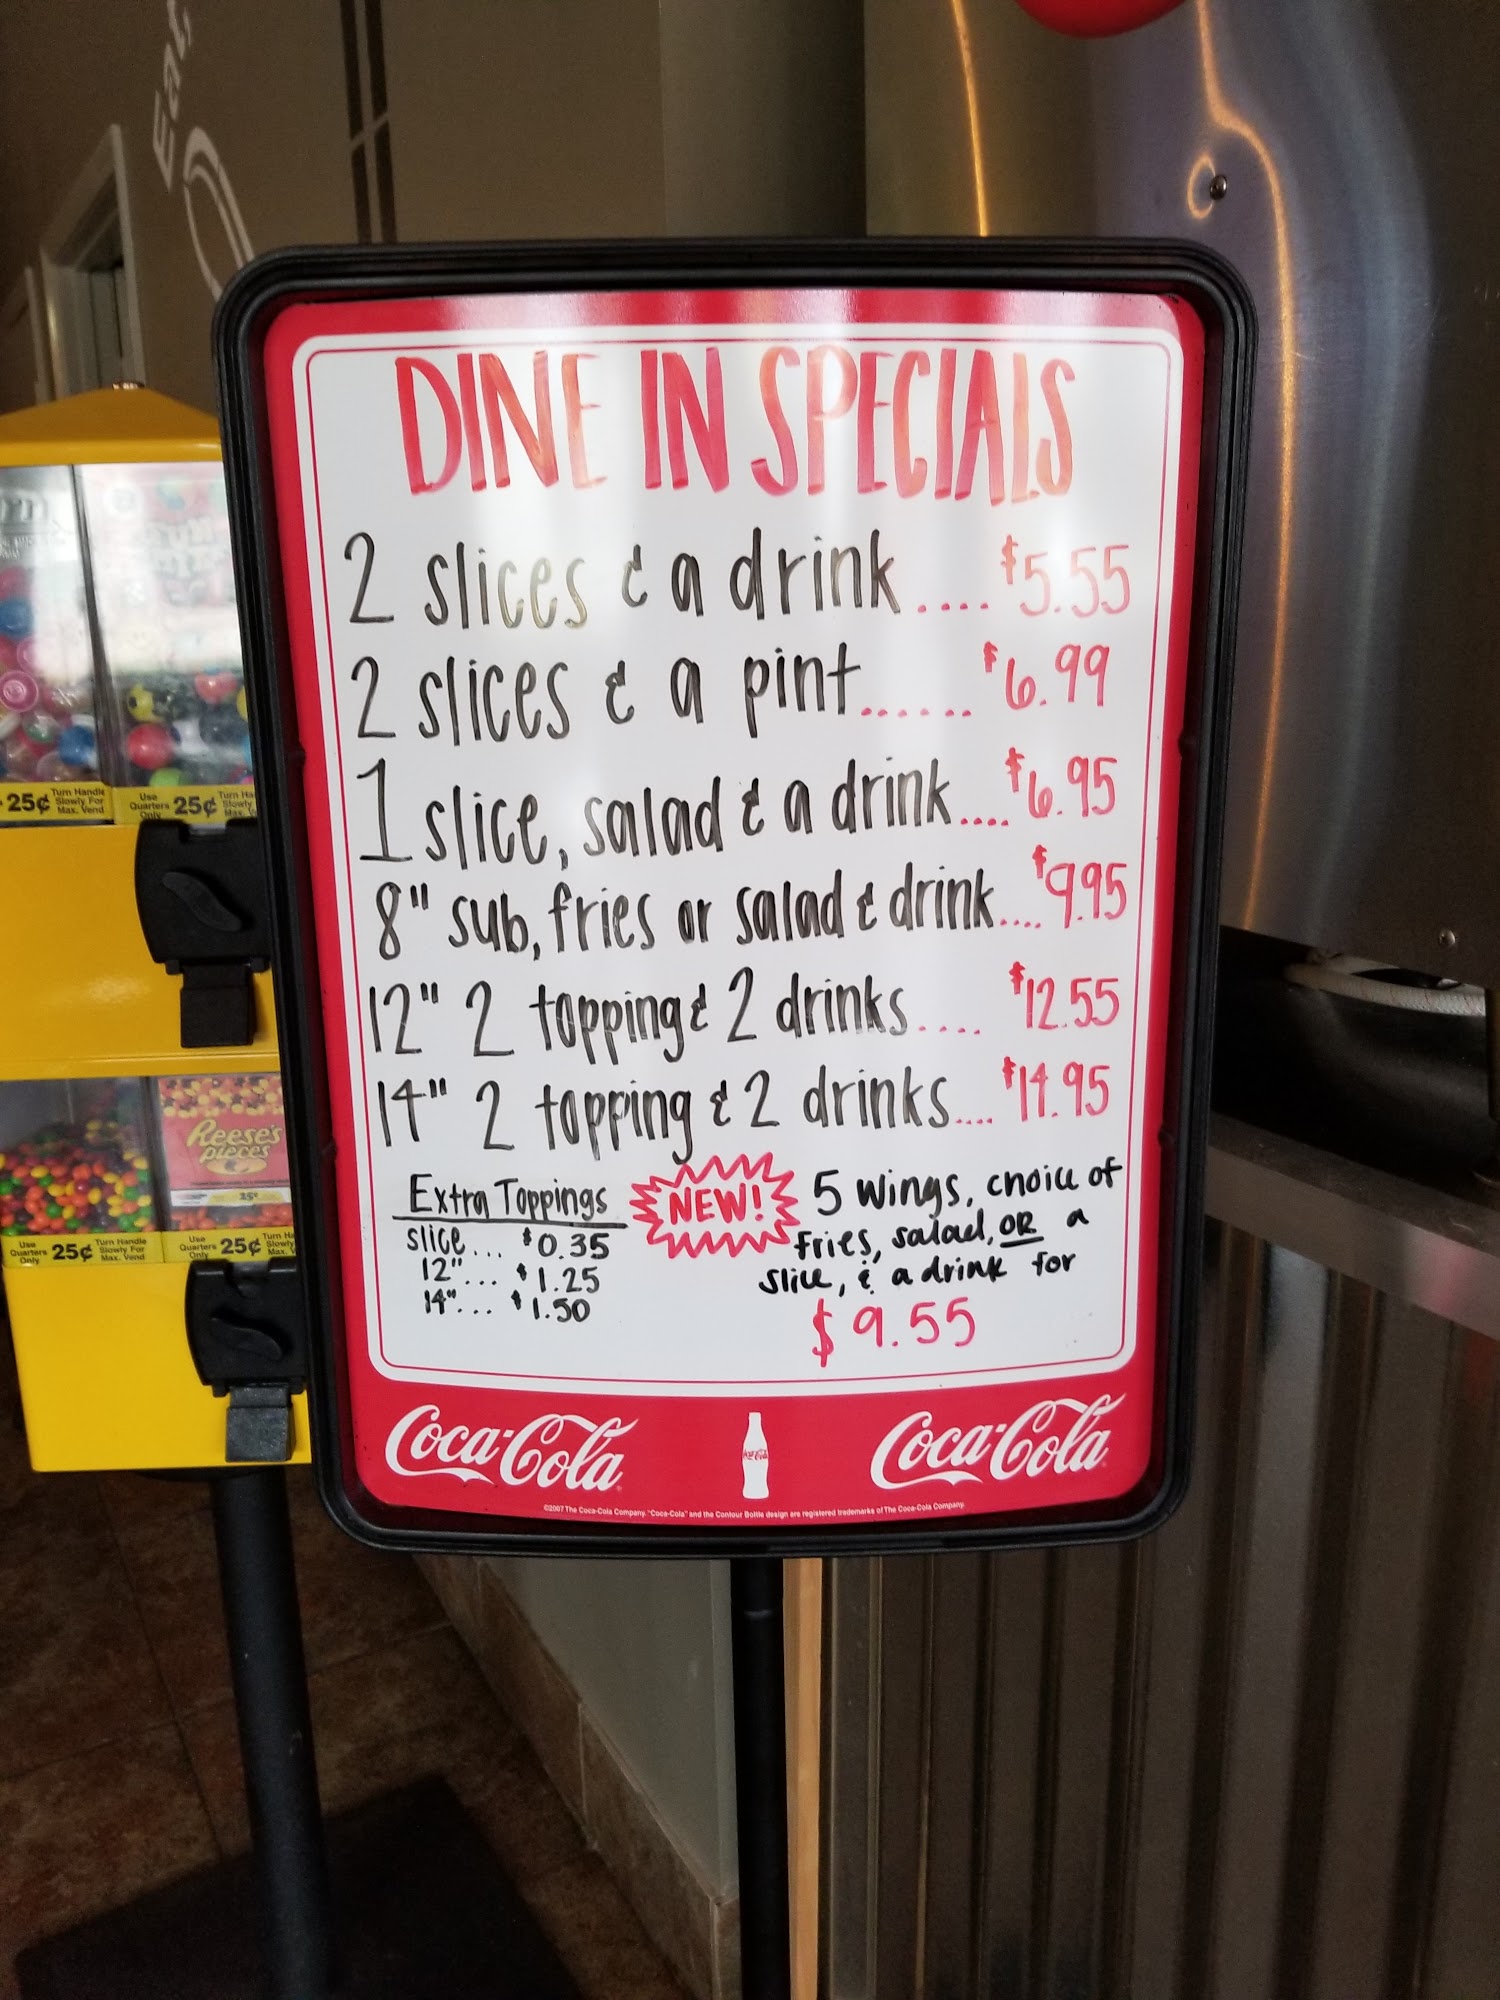 Eat
DINE IN SPECIALS
2 slices & a drink.... $5.55
2 slices & a pint...... $6.99
1 slice, salad & a drink.... $6.95
8" sub, fries or salad & drink.... $9.95
12" 2 topping & 2 drinks.... $12.55
14" 2 topping & 2 drinks.... $14.95
Extra Toppings
slice... $0.35
12"... $1.25
14"... $1.50
NEW! 5 wings, choice of
fries, salad, OR a
slice, & a drink for
$9.55
Coca-Cola Coca-Cola Coca-Cola
©2007 The Coca-Cola Company. "Coca-Cola" and the Contour Bottle design are registered trademarks of The Coca-Cola Company.
25¢ Turn Handle Slowly For Max. Vend
Use Quarters Only 25¢ Turn Ha Slowly Max. V
Reese's
pieces
25¢
Use Quarters Only 25¢ Turn Handle Slowly For Max. Vend
Use Quarters Only 25¢ Turn Ha Slowly Max. V